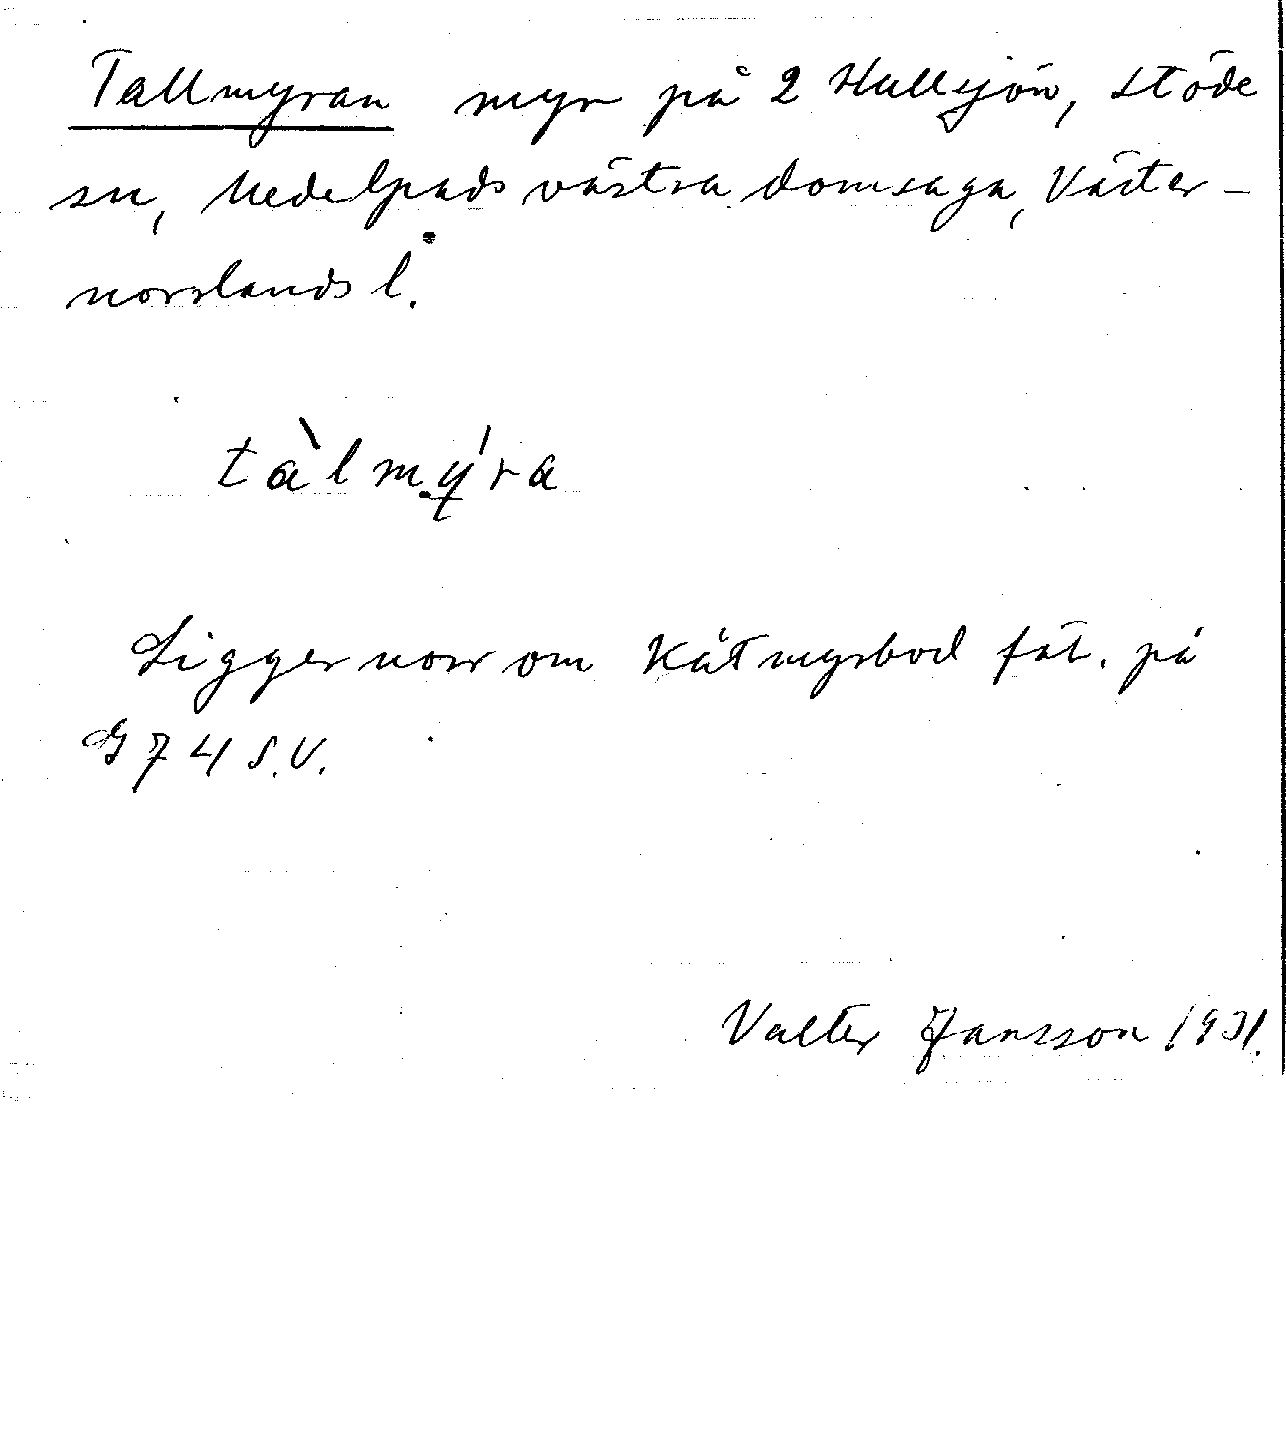 Tallmyran myr på 2 Hullsjön, Stöde
sn, Medelpads västra domsaga, Väster-
norrlands l.
tàlmy̍ra
Ligger norr om Kåtmyrbod fäb. på
G 74 S.V.
Valter Jansson 1931.